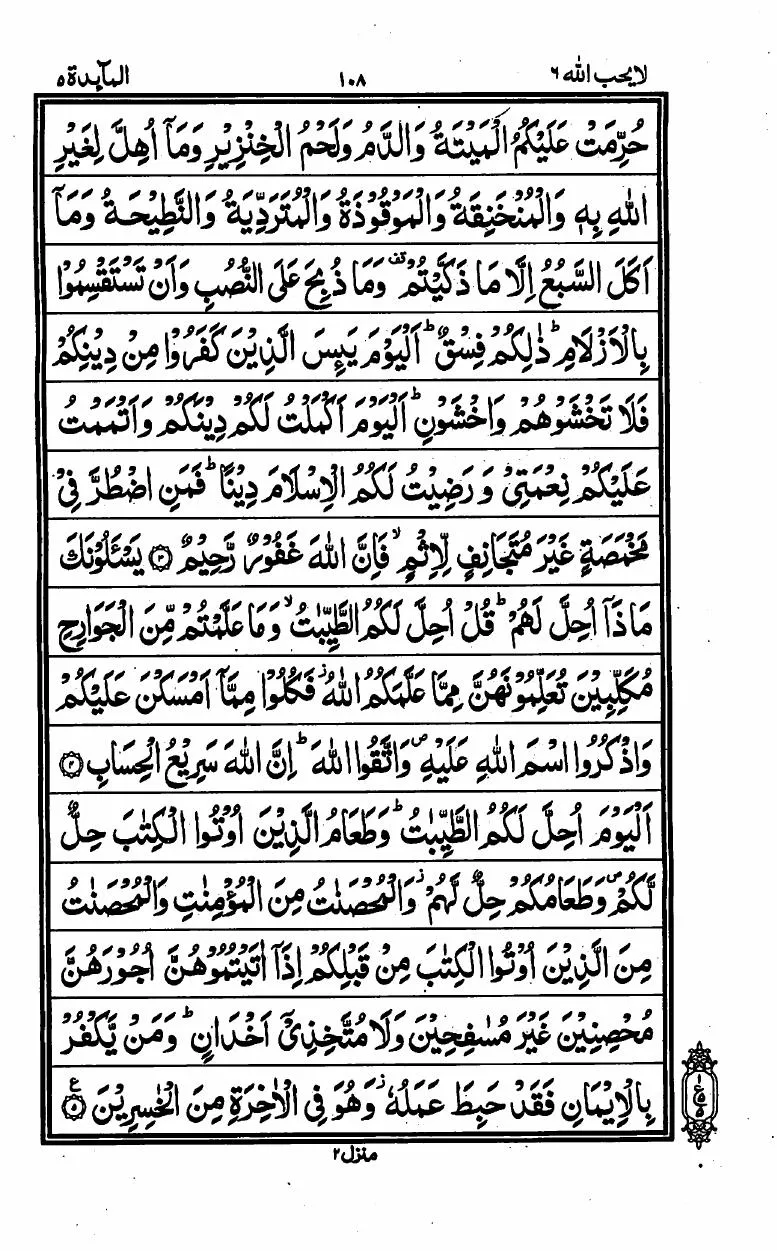 لا يحب الله ٦
١٠٨
المآيدة ٥
حُرِّمَتْ عَلَيْكُمُ الْمَيْتَةُ وَالدَّمُ وَلَحْمُ الْخِنْزِيْرِ وَمَاۤ اُهِلَّ لِغَيْرِ
اللّٰهِ بِهٖ وَالْمُنْخَنِقَةُ وَالْمَوْقُوْذَةُ وَالْمُتَرَدِّيَةُ وَالنَّطِيْحَةُ وَمَاۤ
اَكَلَ السَّبُعُ اِلَّا مَا ذَكَّيْتُمْ ۫ وَمَا ذُبِحَ عَلَى النُّصُبِ وَاَنْ تَسْتَقْسِمُوْا
بِالْاَزْلَامِ ؕ ذٰلِكُمْ فِسْقٌ ؕ اَلْيَوْمَ يَىِٕسَ الَّذِيْنَ كَفَرُوْا مِنْ دِيْنِكُمْ
فَلَا تَخْشَوْهُمْ وَاخْشَوْنِ ؕ اَلْيَوْمَ اَكْمَلْتُ لَكُمْ دِيْنَكُمْ وَاَتْمَمْتُ
عَلَيْكُمْ نِعْمَتِيْ وَرَضِيْتُ لَكُمُ الْاِسْلَامَ دِيْنًا ؕ فَمَنِ اضْطُرَّ فِيْ
مَخْمَصَةٍ غَيْرَ مُتَجَانِفٍ لِّاِثْمٍ ۙ فَاِنَّ اللّٰهَ غَفُوْرٌ رَّحِيْمٌ ۝٣ يَسْـَٔلُوْنَكَ
مَاذَاۤ اُحِلَّ لَهُمْ ؕ قُلْ اُحِلَّ لَكُمُ الطَّيِّبٰتُ ۙ وَمَا عَلَّمْتُمْ مِّنَ الْجَوَارِحِ
مُكَلِّبِيْنَ تُعَلِّمُوْنَهُنَّ مِمَّا عَلَّمَكُمُ اللّٰهُ ؗ فَكُلُوْا مِمَّاۤ اَمْسَكْنَ عَلَيْكُمْ
وَاذْكُرُوا اسْمَ اللّٰهِ عَلَيْهِ ۪ وَاتَّقُوا اللّٰهَ ؕ اِنَّ اللّٰهَ سَرِيْعُ الْحِسَابِ ۝٤
اَلْيَوْمَ اُحِلَّ لَكُمُ الطَّيِّبٰتُ ؕ وَطَعَامُ الَّذِيْنَ اُوْتُوا الْكِتٰبَ حِلٌّ
لَّكُمْ ۪ وَطَعَامُكُمْ حِلٌّ لَّهُمْ ؗ وَالْمُحْصَنٰتُ مِنَ الْمُؤْمِنٰتِ وَالْمُحْصَنٰتُ
مِنَ الَّذِيْنَ اُوْتُوا الْكِتٰبَ مِنْ قَبْلِكُمْ اِذَاۤ اٰتَيْتُمُوْهُنَّ اُجُوْرَهُنَّ
مُحْصِنِيْنَ غَيْرَ مُسٰفِحِيْنَ وَلَا مُتَّخِذِيْۤ اَخْدَانٍ ؕ وَمَنْ يَّكْفُرْ
بِالْاِيْمَانِ فَقَدْ حَبِطَ عَمَلُهٗ ؗ وَهُوَ فِي الْاٰخِرَةِ مِنَ الْخٰسِرِيْنَ ۝٥ ع
١
ع ٥
٥
منزل ٢